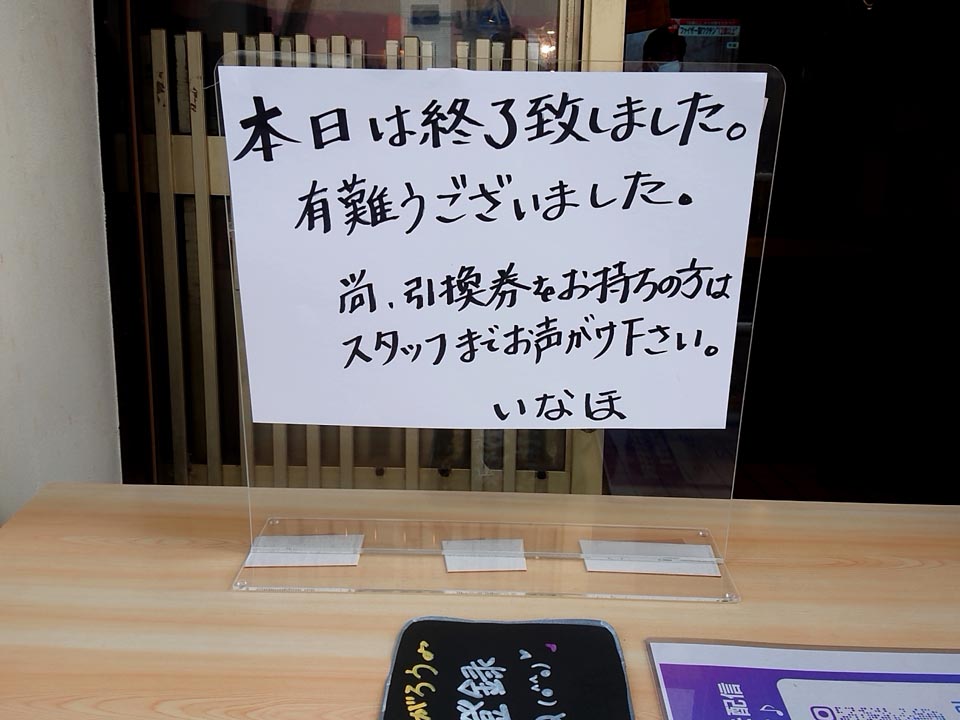 本日は終了致しました。
有難うございました。
尚、引換券をお持ちの方は
スタッフまでお声がけ下さい。
いなほ
がろう♪
登録
配信